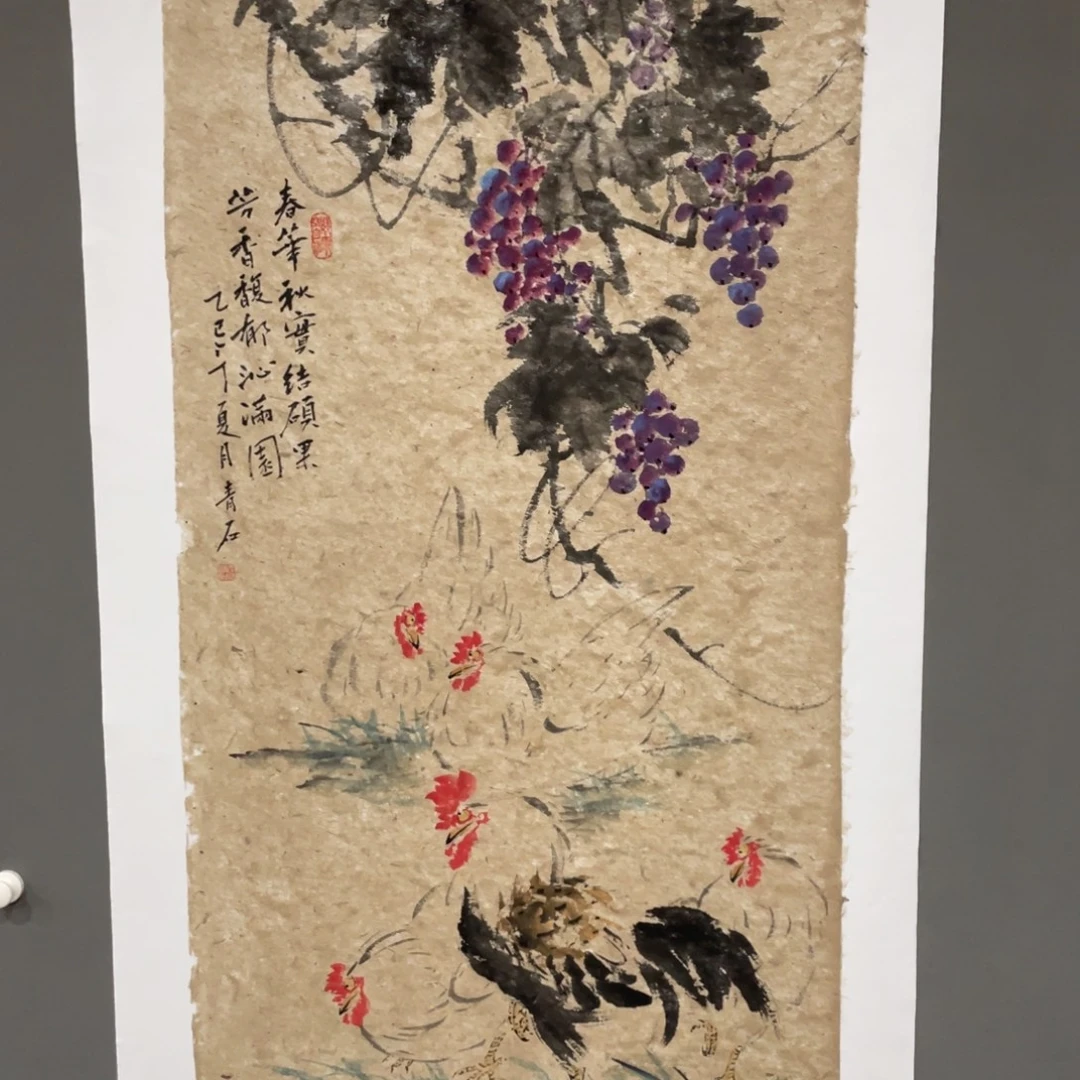 春華秋實結碩果
芳香馥郁沁滿園
乙巳年夏月青石